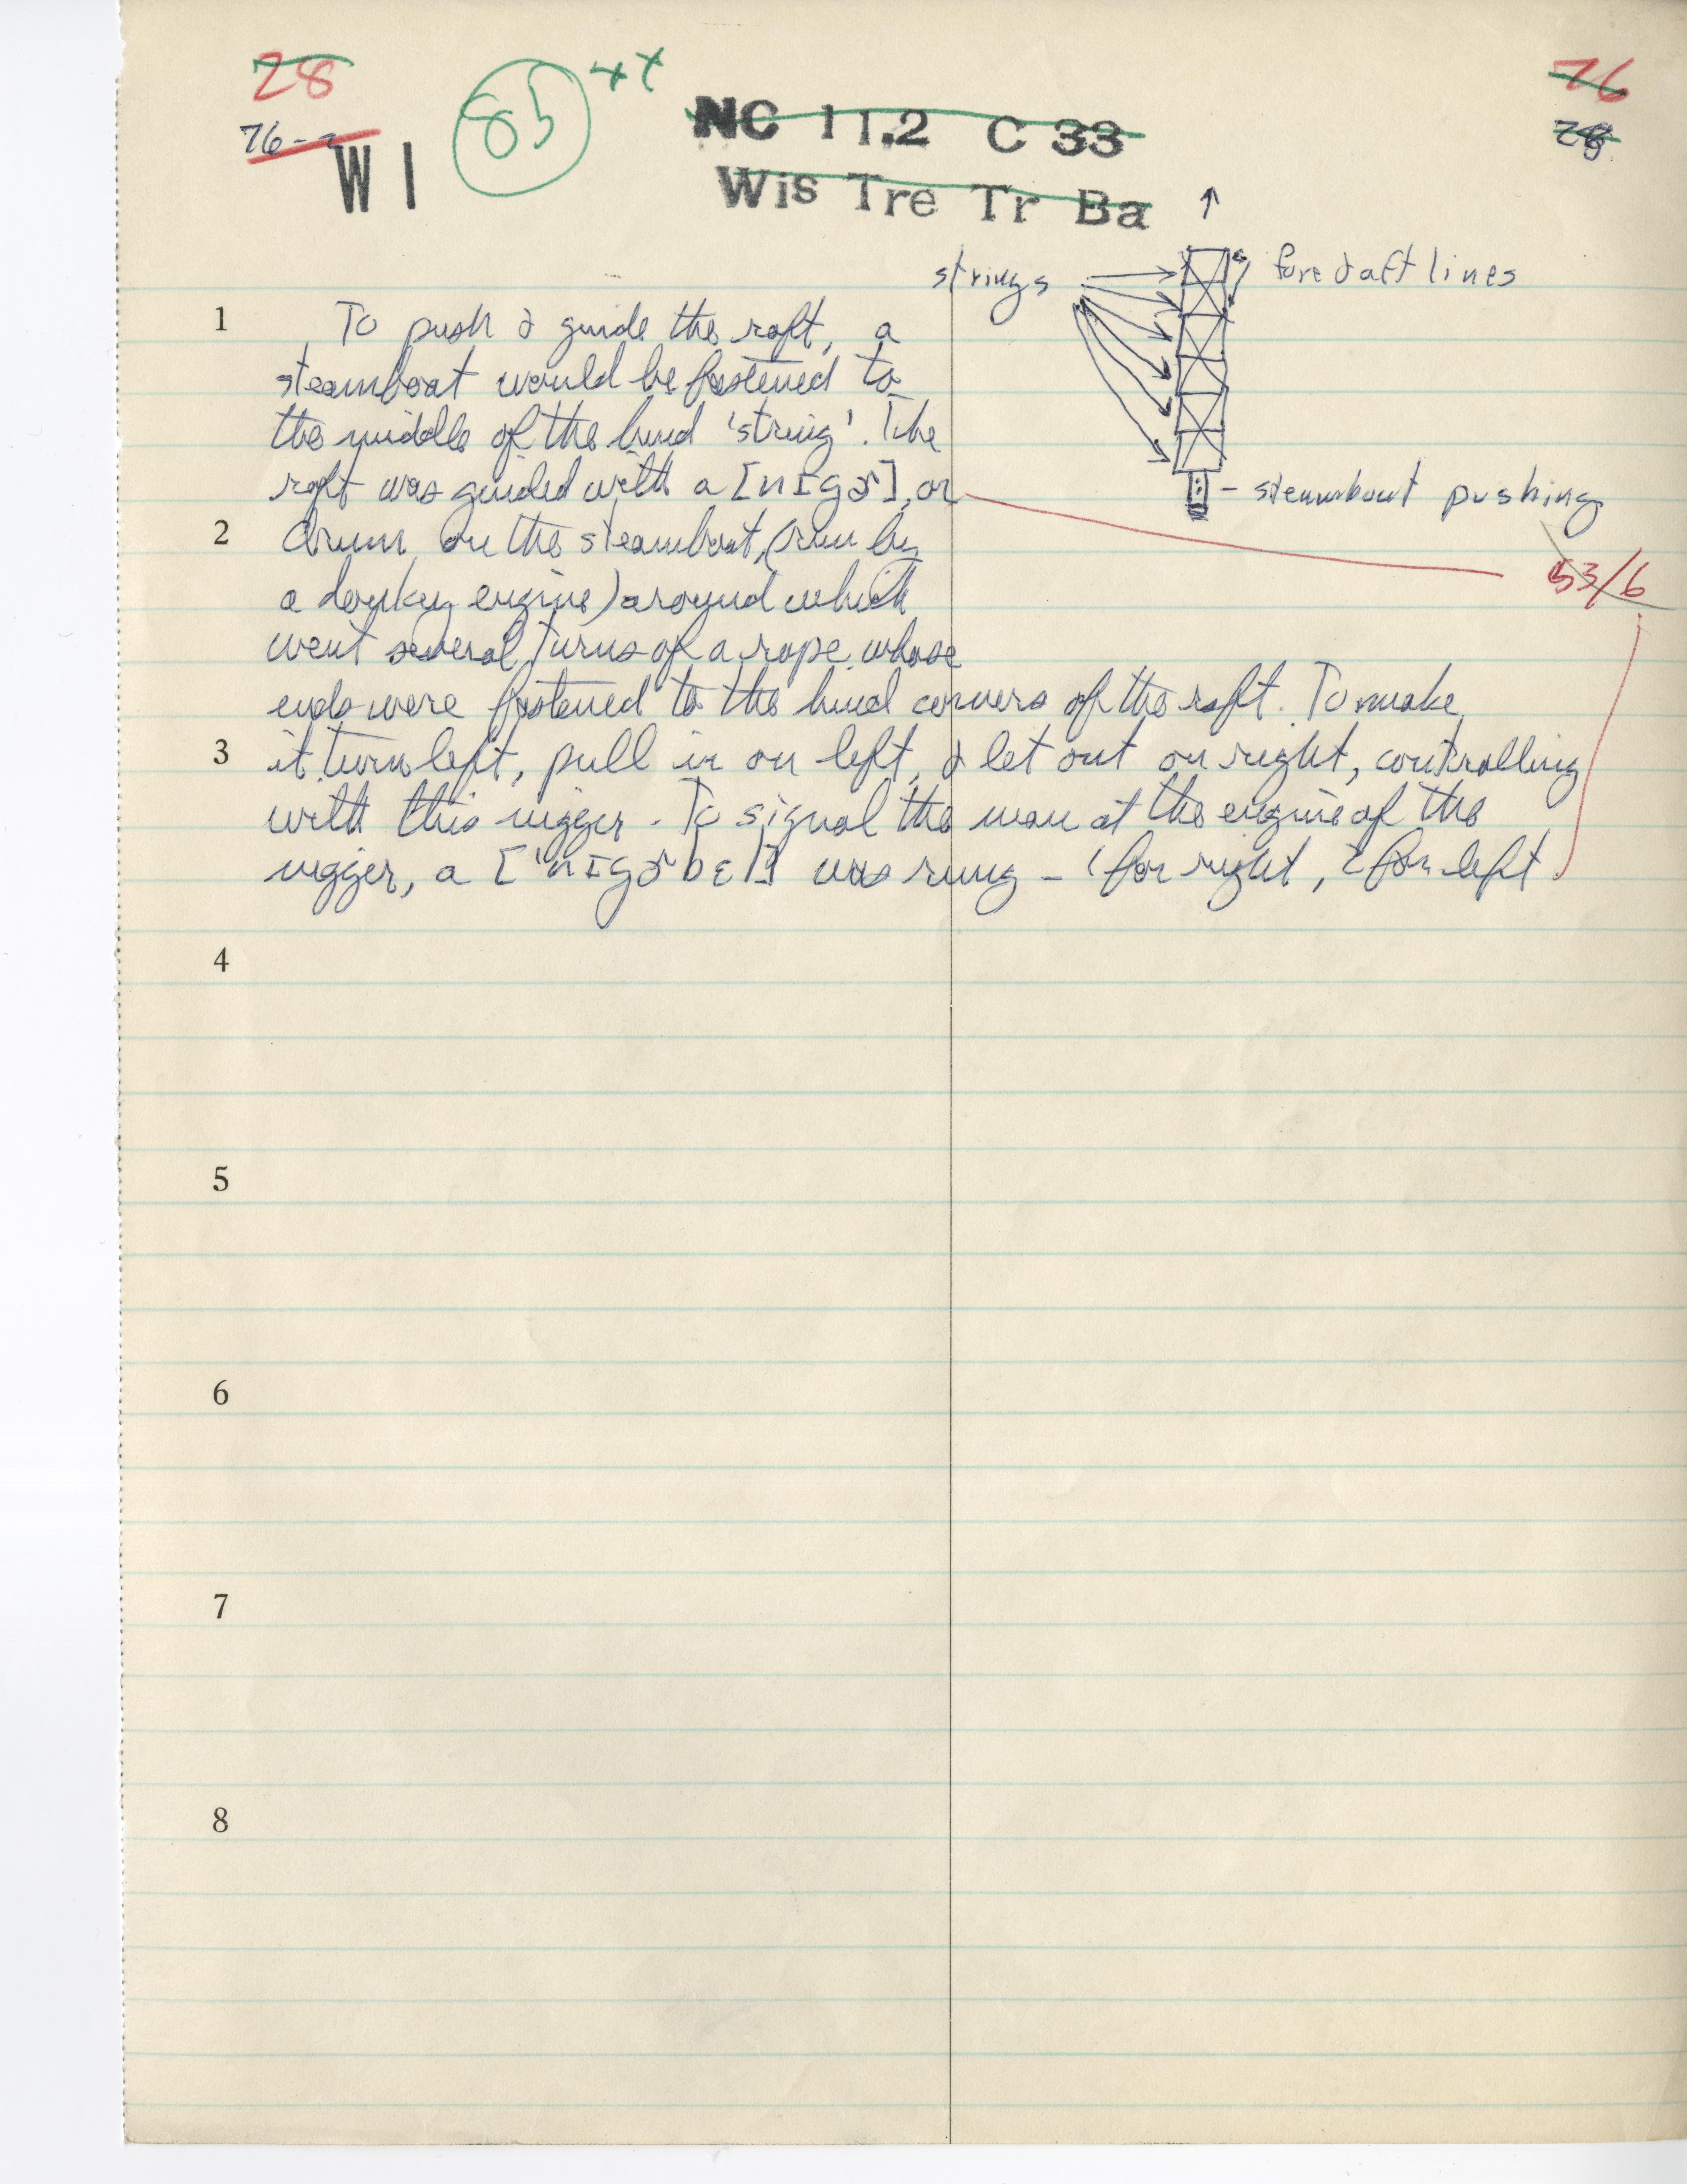 28
76-2
W I
85 ++
NC 11.2 C 33
Wis Tre Tr Ba
76
28
strings
fore & aft lines
steamboat pushing
53/6
1 To push & guide the raft, a
steamboat would be fastened to
the middle of the hind 'string'. The
raft was guided with a [nɪgɚ], or
2 drum on the steamboat, (run by
a donkey engine) around which
went several turns of a rope whose
ends were fastened to the hind corners of the raft. To make
3 it turn left, pull in on left, & let out on right, controlling
with this nigger. To signal the man at the engine of the
nigger, a ['nɪgɚbɛl] was rung – 1 for right, 2 for left
4
5
6
7
8